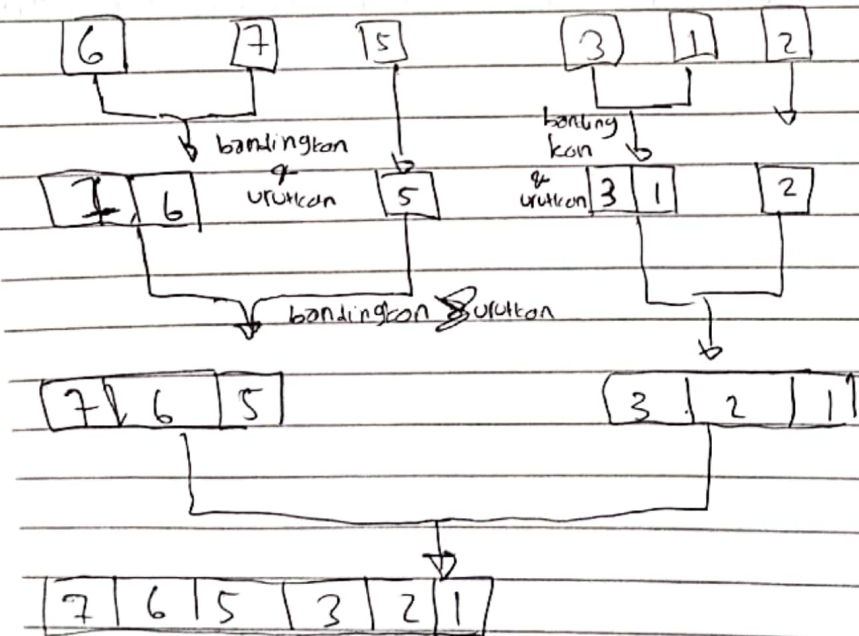 6 7 5 3 1 2
bandingkan
&
urutkan
banding
kan
& urutkan
7 6 5 3 1 2
bandingkan & urutkan
7 6 5 3 2 1
7 6 5 3 2 1